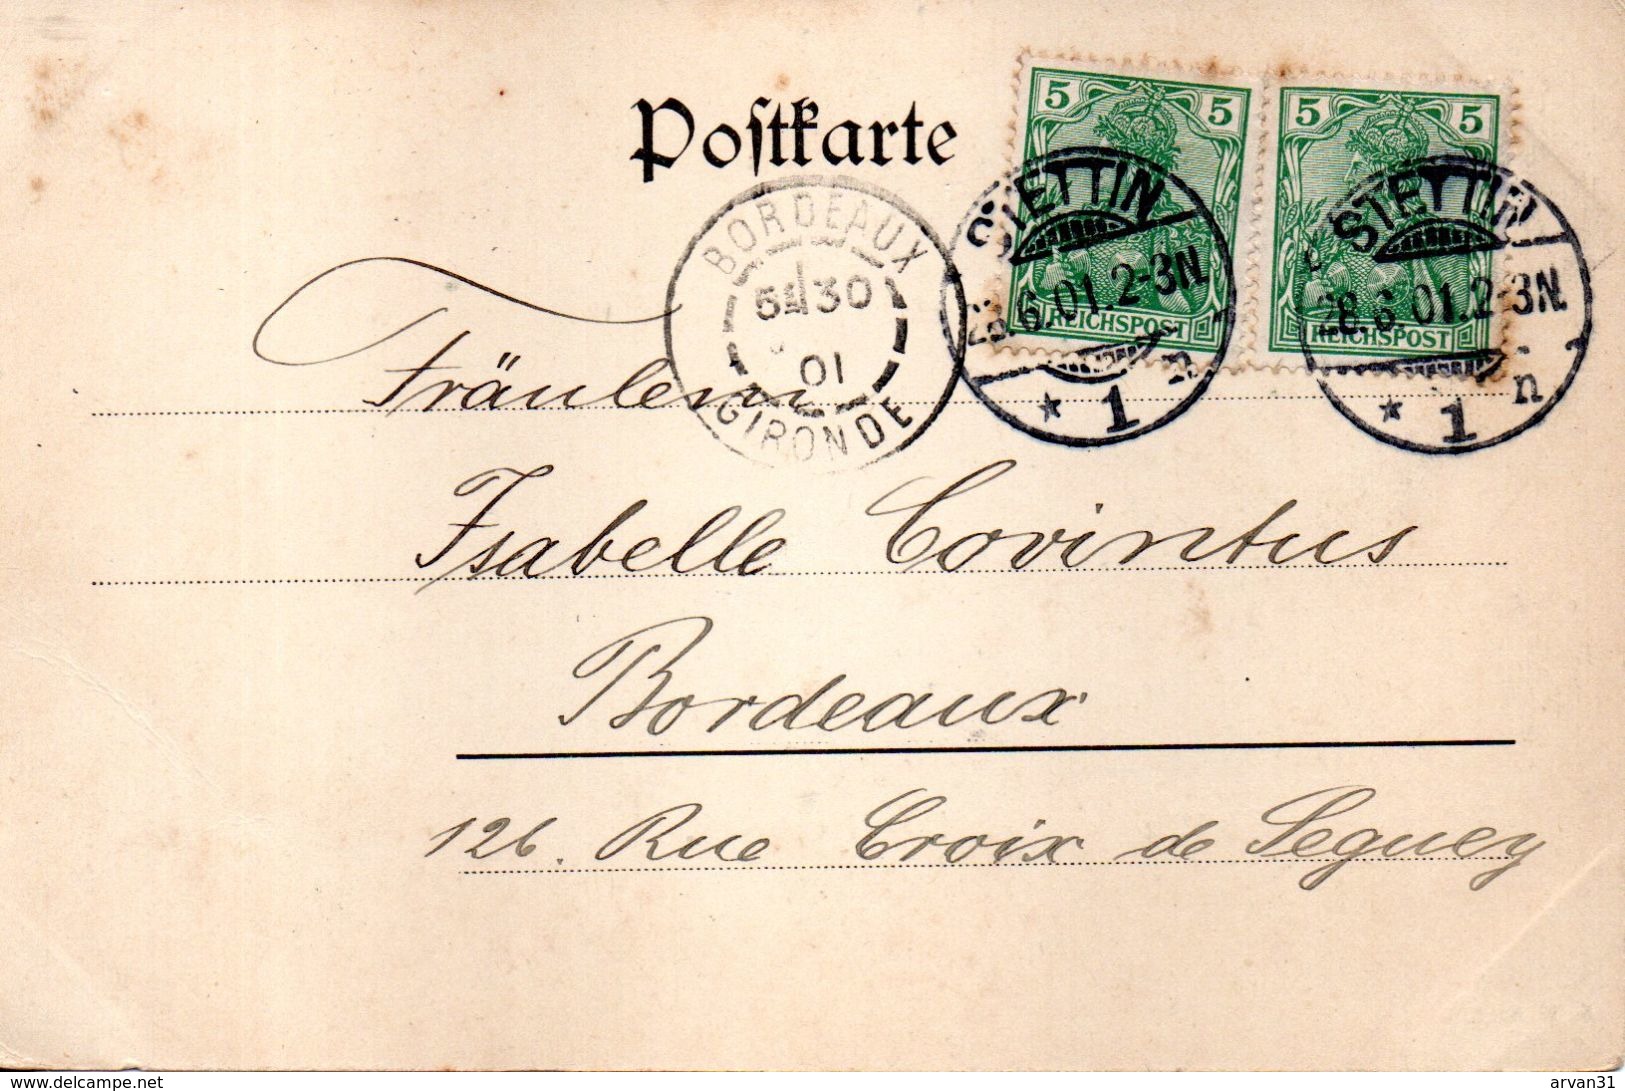 Postkarte
5 5
5 5
REICHSPOST
REICHSPOST
STETTIN
28.6.01.2-3N.
* 1 n
STETTIN
28.6.01.2-3N.
* 1 n
BORDEAUX
5E 30
01
GIRONDE
Fräulein
Isabelle Corintus
Bordeaux
126. Rue Croix de Seguey
www.delcampe.net
arvan31